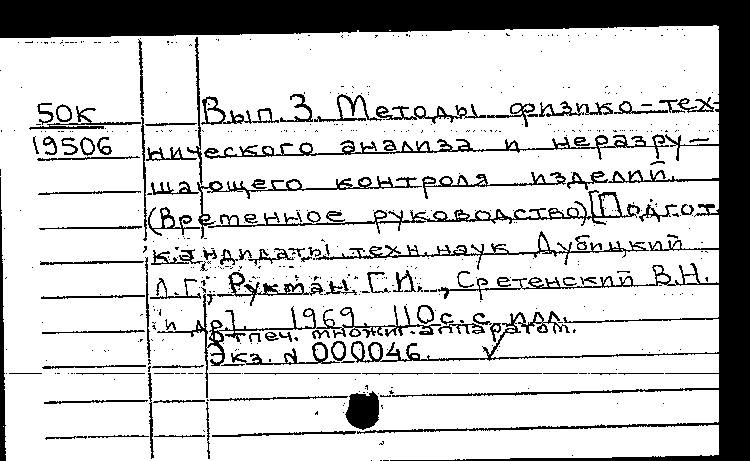 50К
19506
Вып. 3. Методы физико-тех-
нического анализа и неразру-
шающего контроля изделий.
(Временное руководство) [Подгот.
кандидаты техн. наук Дубицкий
Л.Г., Руктан Г.И., Сретенский В.Н.
и др]. 1969 110с. с илл.
Отпеч. множит. аппаратом.
Экз. N 000046. ✓